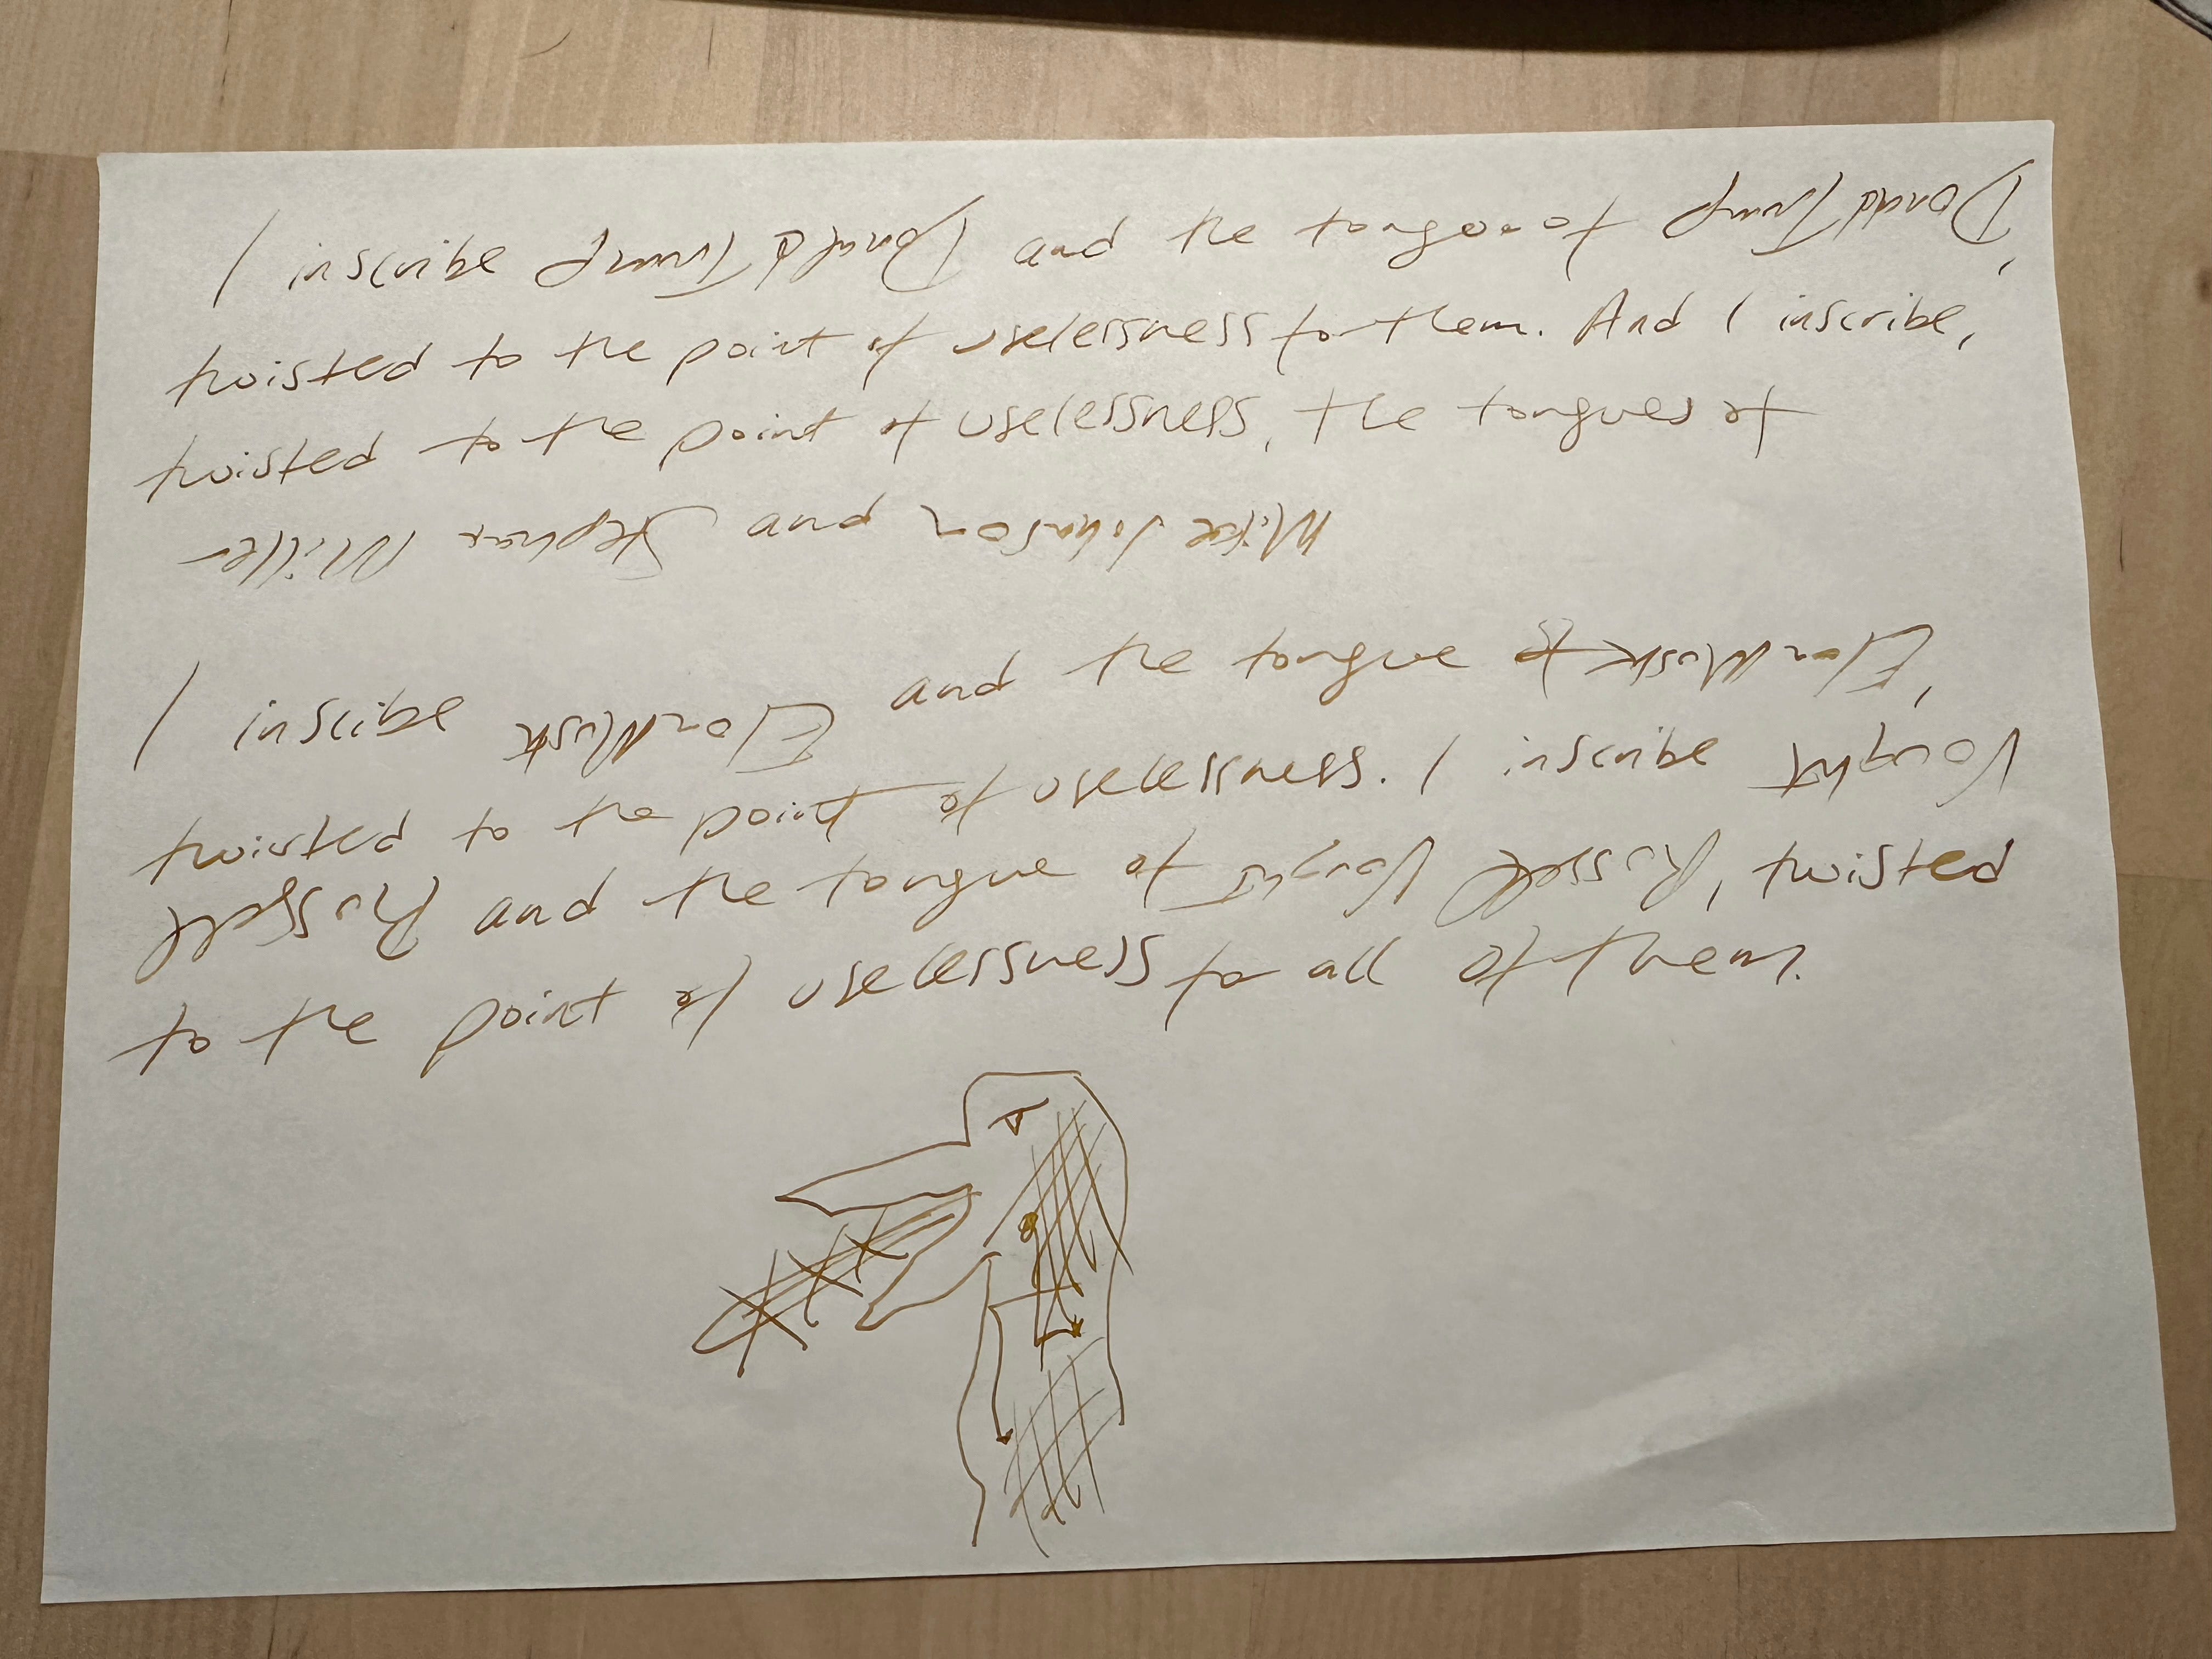 I inscribe Donald Trump and the tongue of Donald Trump,
twisted to the point of uselessness for them. And I inscribe,
twisted to the point of uselessness, the tongues of
Mike Johnson and Stephen Miller
I inscribe Elon Musk and the tongue of Elon Musk,
twisted to the point of uselessness. I inscribe Vought
Russell and the tongue of Vought Russell, twisted
to the point of uselessness for all of them.